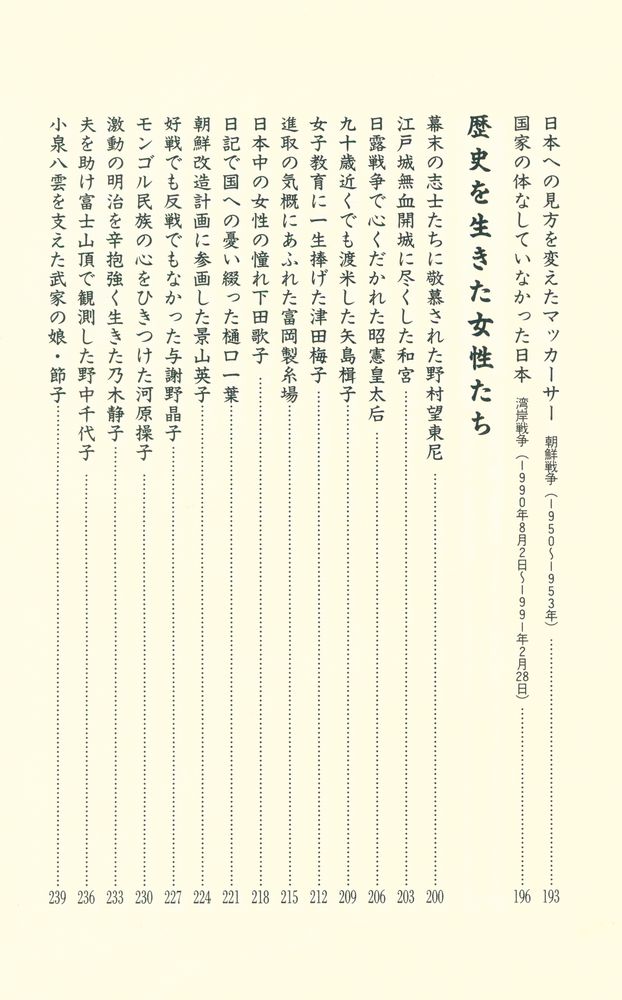 日本への見方を変えたマッカーサー 朝鮮戦争（1950〜1953年）……193
国家の体なしていなかった日本 湾岸戦争（1990年8月2日〜1991年2月28日）……196
歴史を生きた女性たち
幕末の志士たちに敬慕された野村望東尼……200
江戸城無血開城に尽くした和宮……203
日露戦争で心くだかれた昭憲皇太后……206
九十歳近くでも渡米した矢島楫子……209
女子教育に一生捧げた津田梅子……212
進取の気概にあふれた富岡製糸場……215
日本中の女性の憧れ下田歌子……218
日記で国への憂い綴った樋口一葉……221
朝鮮改造計画に参画した景山英子……224
好戦でも反戦でもなかった与謝野晶子……227
モンゴル民族の心をひきつけた河原操子……230
激動の明治を辛抱強く生きた乃木静子……233
夫を助け富士山頂で観測した野中千代子……236
小泉八雲を支えた武家の娘・節子……239